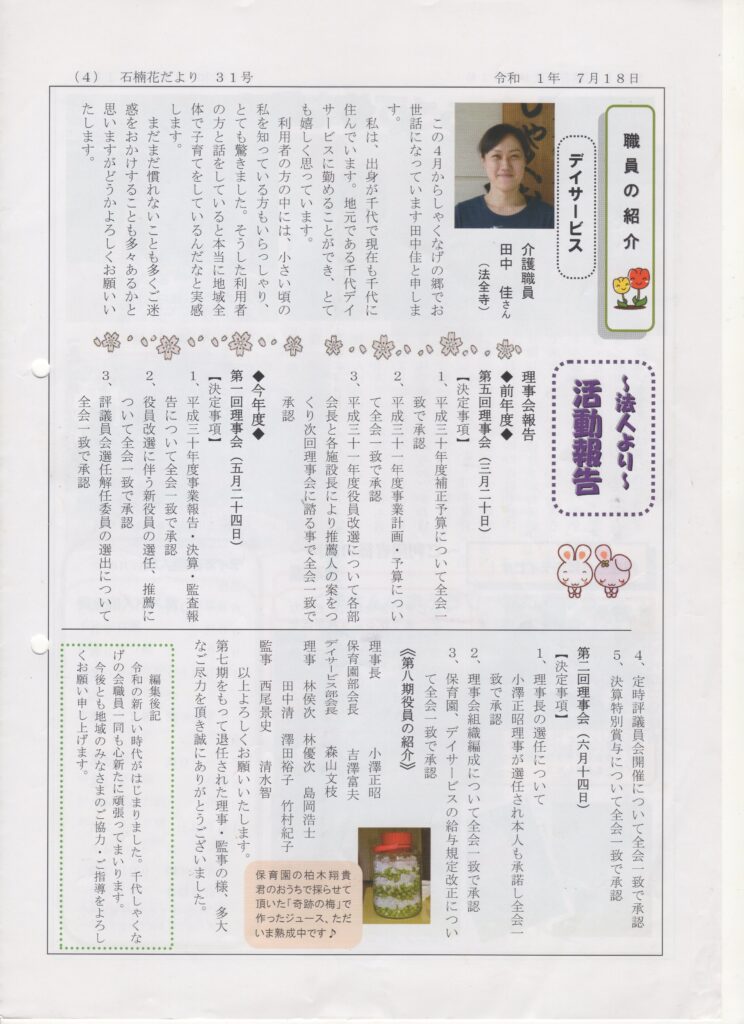 (4) 石楠花だより 31号
令和 1年 7月18日
職員の紹介
デイサービス
介護職員
田中 佳さん
(法全寺)
この4月からしゃくなげの郷でお
世話になっています田中佳と申しま
す。
私は、出身が千代で現在も千代に
住んでいます。地元である千代デイ
サービスに勤めることができ、とて
も嬉しく思っています。
利用者の方の中には、小さい頃の
私を知っている方もいらっしゃり、
とても驚きました。そうした利用者
の方と話をしていると本当に地域全
体で子育てをしているんだなと実感
します。
まだまだ慣れないことも多くご迷
惑をおかけすることも多々あるかと
思いますがどうかよろしくお願いい
たします。
~法人より~
活動報告
理事会報告
◆前年度◆
第五回理事会(三月二十日)
【決定事項】
1、平成三十年度補正予算について全会一
致で承認
2、平成三十一年度事業計画・予算につい
て全会一致で承認
3、平成三十一年度役員改選について各部
会長と各施設長により推薦人の案をつ
くり次回理事会に諮る事で全会一致で
承認
◆今年度◆
第一回理事会(五月二十四日)
【決定事項】
1、平成三十年度事業報告・決算・監査報
告について全会一致で承認
2、役員改選に伴う新役員の選任、推薦に
ついて全会一致で承認
3、評議員会選任解任委員の選出について
全会一致で承認
4、定時評議員会開催について全会一致で承認
5、決算特別賞与について全会一致で承認
第二回理事会(六月十四日)
【決定事項】
1、理事長の選任について
小澤正昭理事が選任され本人も承諾し全会一
致で承認
2、理事会組織編成について全会一致で承認
3、保育園、デイサービスの給与規定改正につい
て全会一致で承認
《第八期役員の紹介》
理事長 小澤正昭
保育園部会長 吉澤富夫
デイサービス部会長 森山文枝
理事 林俣次 林優次 島岡浩士
田中清 澤田裕子 竹村紀子
監事 西尾景史 清水智
以上よろしくお願いいたします。
第七期をもって退任された理事・監事の様、多大
なご尽力を頂き誠にありがとうございました。
保育園の柏木翔貴
君のおうちで採らせて
頂いた「奇跡の梅」で
作ったジュース、ただ
いま熟成中です♪
編集後記
令和の新しい時代がはじまりました。千代しゃくな
げの会職員一同も心新たに頑張ってまいります。
今後とも地域のみなさまのご協力・ご指導をよろし
くお願い申し上げます。